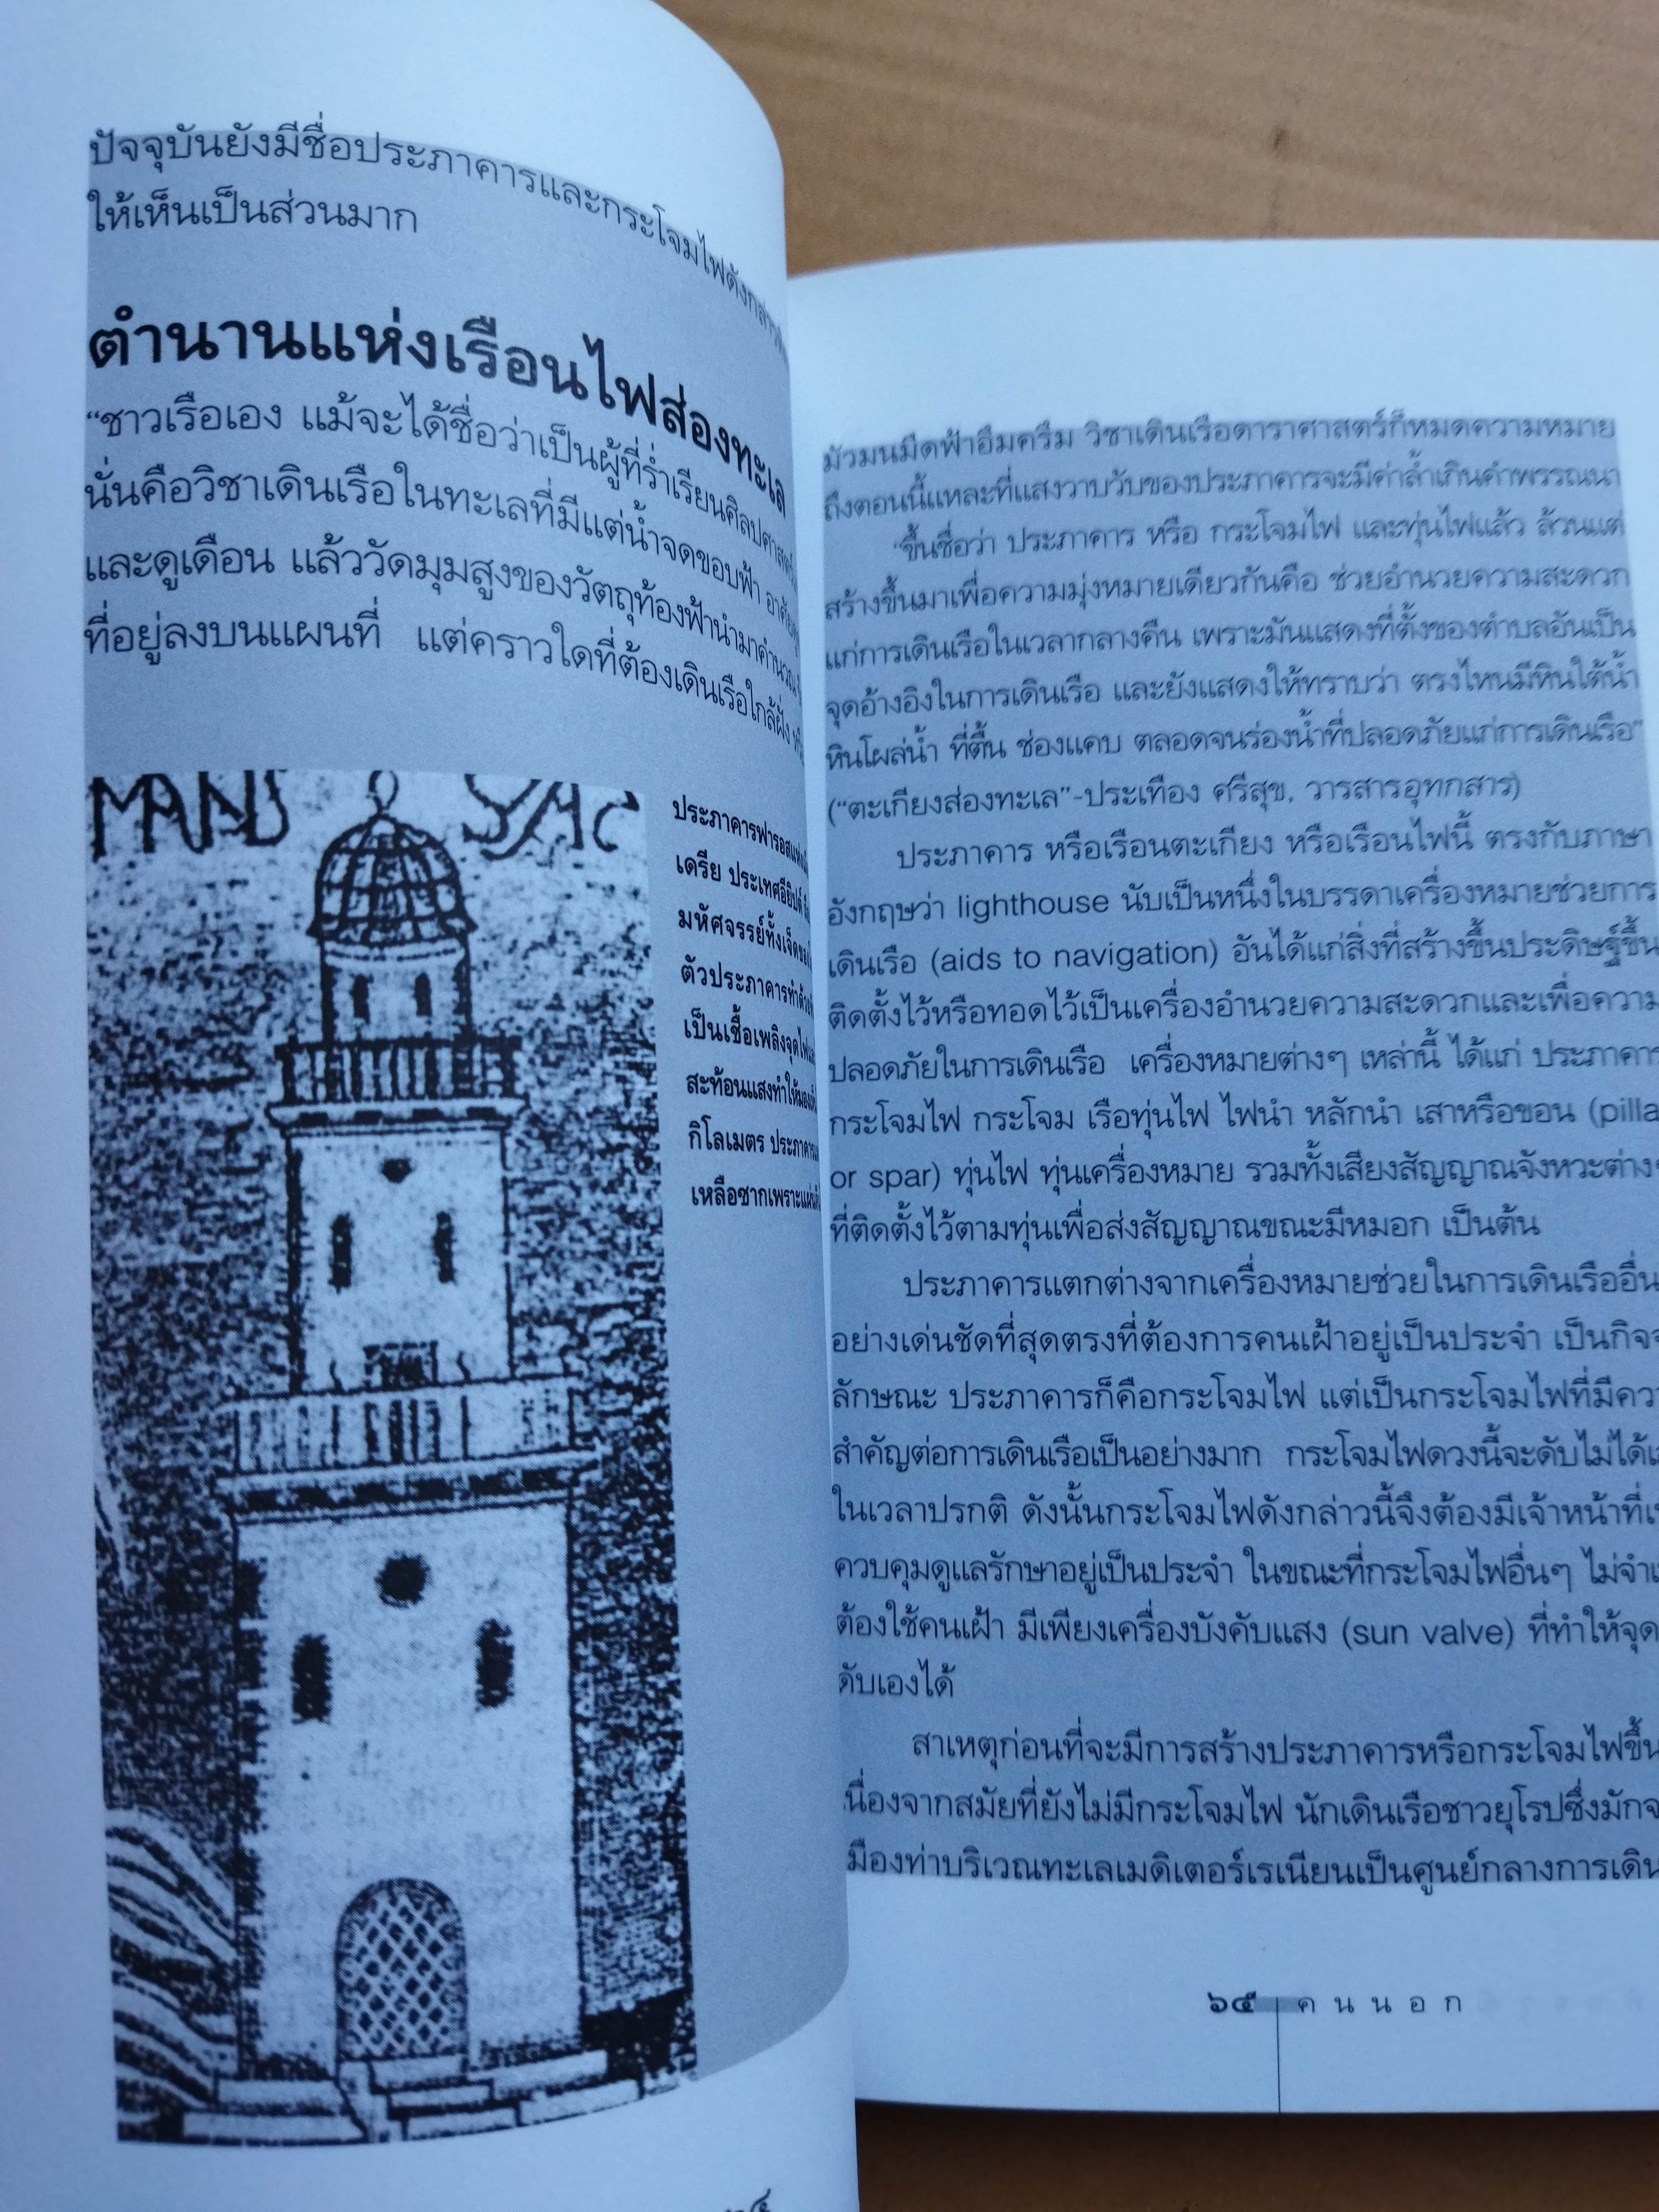 ปัจจุบันยังมีชื่อประภาคารและกระโจมไฟดังกล่าว
ให้เห็นเป็นส่วนมาก
ตำนานแห่งเรือนไฟส่องทะเล
“ชาวเรือเอง แม้จะได้ชื่อว่าเป็นผู้ที่ร่ำเรียนศิลปศาสตร์
นั่นคือวิชาเดินเรือในทะเลที่มีแต่น้ำจดขอบฟ้า
และดูเดือน แล้ววัดมุมสูงของวัตถุท้องฟ้านำมาคำนวณ
ที่อยู่ลงบนแผนที่ แต่คราวใดที่ต้องเดินเรือใกล้ฝั่ง
MANS SAC
ประภาคารฟารอสแห่ง
เดรีย ประเทศอียิปต์
มหัศจรรย์ทั้งเจ็ดของ
ตัวประภาคารทำด้วย
เป็นเชื้อเพลิงจุดไฟ
สะท้อนแสงทำให้มองเห็น
กิโลเมตร ประภาคาร
เหลือซากเพราะแผ่นดิน
มัวมนมืดฟ้าอึมครึม วิชาเดินเรือดาราศาสตร์ก็หมดความหมาย
ถึงตอนนี้แหละที่แสงวาบวับของประภาคารจะมีค่าล้ำเกินคำพรรณนา
“ขึ้นชื่อว่า ประภาคาร หรือ กระโจมไฟ และทุ่นไฟแล้ว ล้วนแต่
สร้างขึ้นมาเพื่อความมุ่งหมายเดียวกันคือ ช่วยอำนวยความสะดวก
แก่การเดินเรือในเวลากลางคืน เพราะมันแสดงที่ตั้งของตำบลอันเป็น
จุดอ้างอิงในการเดินเรือ และยังแสดงให้ทราบว่า ตรงไหนมีหินใต้น้ำ
หินโผล่น้ำ ที่ตื้น ช่องแคบ ตลอดจนร่องน้ำที่ปลอดภัยแก่การเดินเรือ”
(“ตะเกียงส่องทะเล”-ประเทือง ศรีสุข, วารสารอุทกสาร)
ประภาคาร หรือเรือนตะเกียง หรือเรือนไฟนี้ ตรงกับภาษา
อังกฤษว่า lighthouse นับเป็นหนึ่งในบรรดาเครื่องหมายช่วยการ
เดินเรือ (aids to navigation) อันได้แก่สิ่งที่สร้างขึ้นประดิษฐ์ขึ้น
ติดตั้งไว้หรือทอดไว้เป็นเครื่องอำนวยความสะดวกและเพื่อความ
ปลอดภัยในการเดินเรือ เครื่องหมายต่างๆ เหล่านี้ ได้แก่ ประภาคาร
กระโจมไฟ กระโจม เรือทุ่นไฟ ไฟนำ หลักนำ เสาหรือขอน (pilla
or spar) ทุ่นไฟ ทุ่นเครื่องหมาย รวมทั้งเสียงสัญญาณจังหวะต่างๆ
ที่ติดตั้งไว้ตามทุ่นเพื่อส่งสัญญาณขณะมีหมอก เป็นต้น
ประภาคารแตกต่างจากเครื่องหมายช่วยในการเดินเรืออื่น
อย่างเด่นชัดที่สุดตรงที่ต้องการคนเฝ้าอยู่เป็นประจำ เป็นกิจจ
ลักษณะ ประภาคารก็คือกระโจมไฟ แต่เป็นกระโจมไฟที่มีคว
สำคัญต่อการเดินเรือเป็นอย่างมาก กระโจมไฟดวงนี้จะดับไม่ได้
ในเวลาปรกติ ดังนั้นกระโจมไฟดังกล่าวนี้จึงต้องมีเจ้าหน้าที่
ควบคุมดูแลรักษาอยู่เป็นประจำ ในขณะที่กระโจมไฟอื่นๆ ไม่จำ
ต้องใช้คนเฝ้า มีเพียงเครื่องบังคับแสง (sun valve) ที่ทำให้จุด
ดับเองได้
สาเหตุก่อนที่จะมีการสร้างประภาคารหรือกระโจมไฟขึ้น
เนื่องจากสมัยที่ยังไม่มีกระโจมไฟ นักเดินเรือชาวยุโรปซึ่งมัก
เมืองท่าบริเวณทะเลเมดิเตอร์เรเนียนเป็นศูนย์กลางการเดิน
๖๕ คนนอก